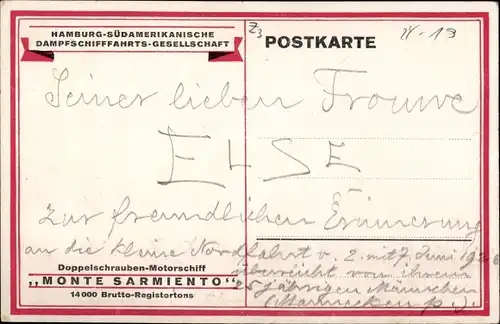 HAMBURG-SÜDAMERIKANISCHE
DAMPFSCHIFFFAHRTS-GESELLSCHAFT
POSTKARTE
Z3
Seiner lieben Frouwe
ELSE
zur freundlichen Erinnerung
an die kleine Nordfahrt v. 2. mit 7. Juni 1926
überreicht von ihrem
25jährigen Männchen
Doppelschrauben-Motorschiff
„MONTE SARMIENTO"
14000 Brutto-Registortons